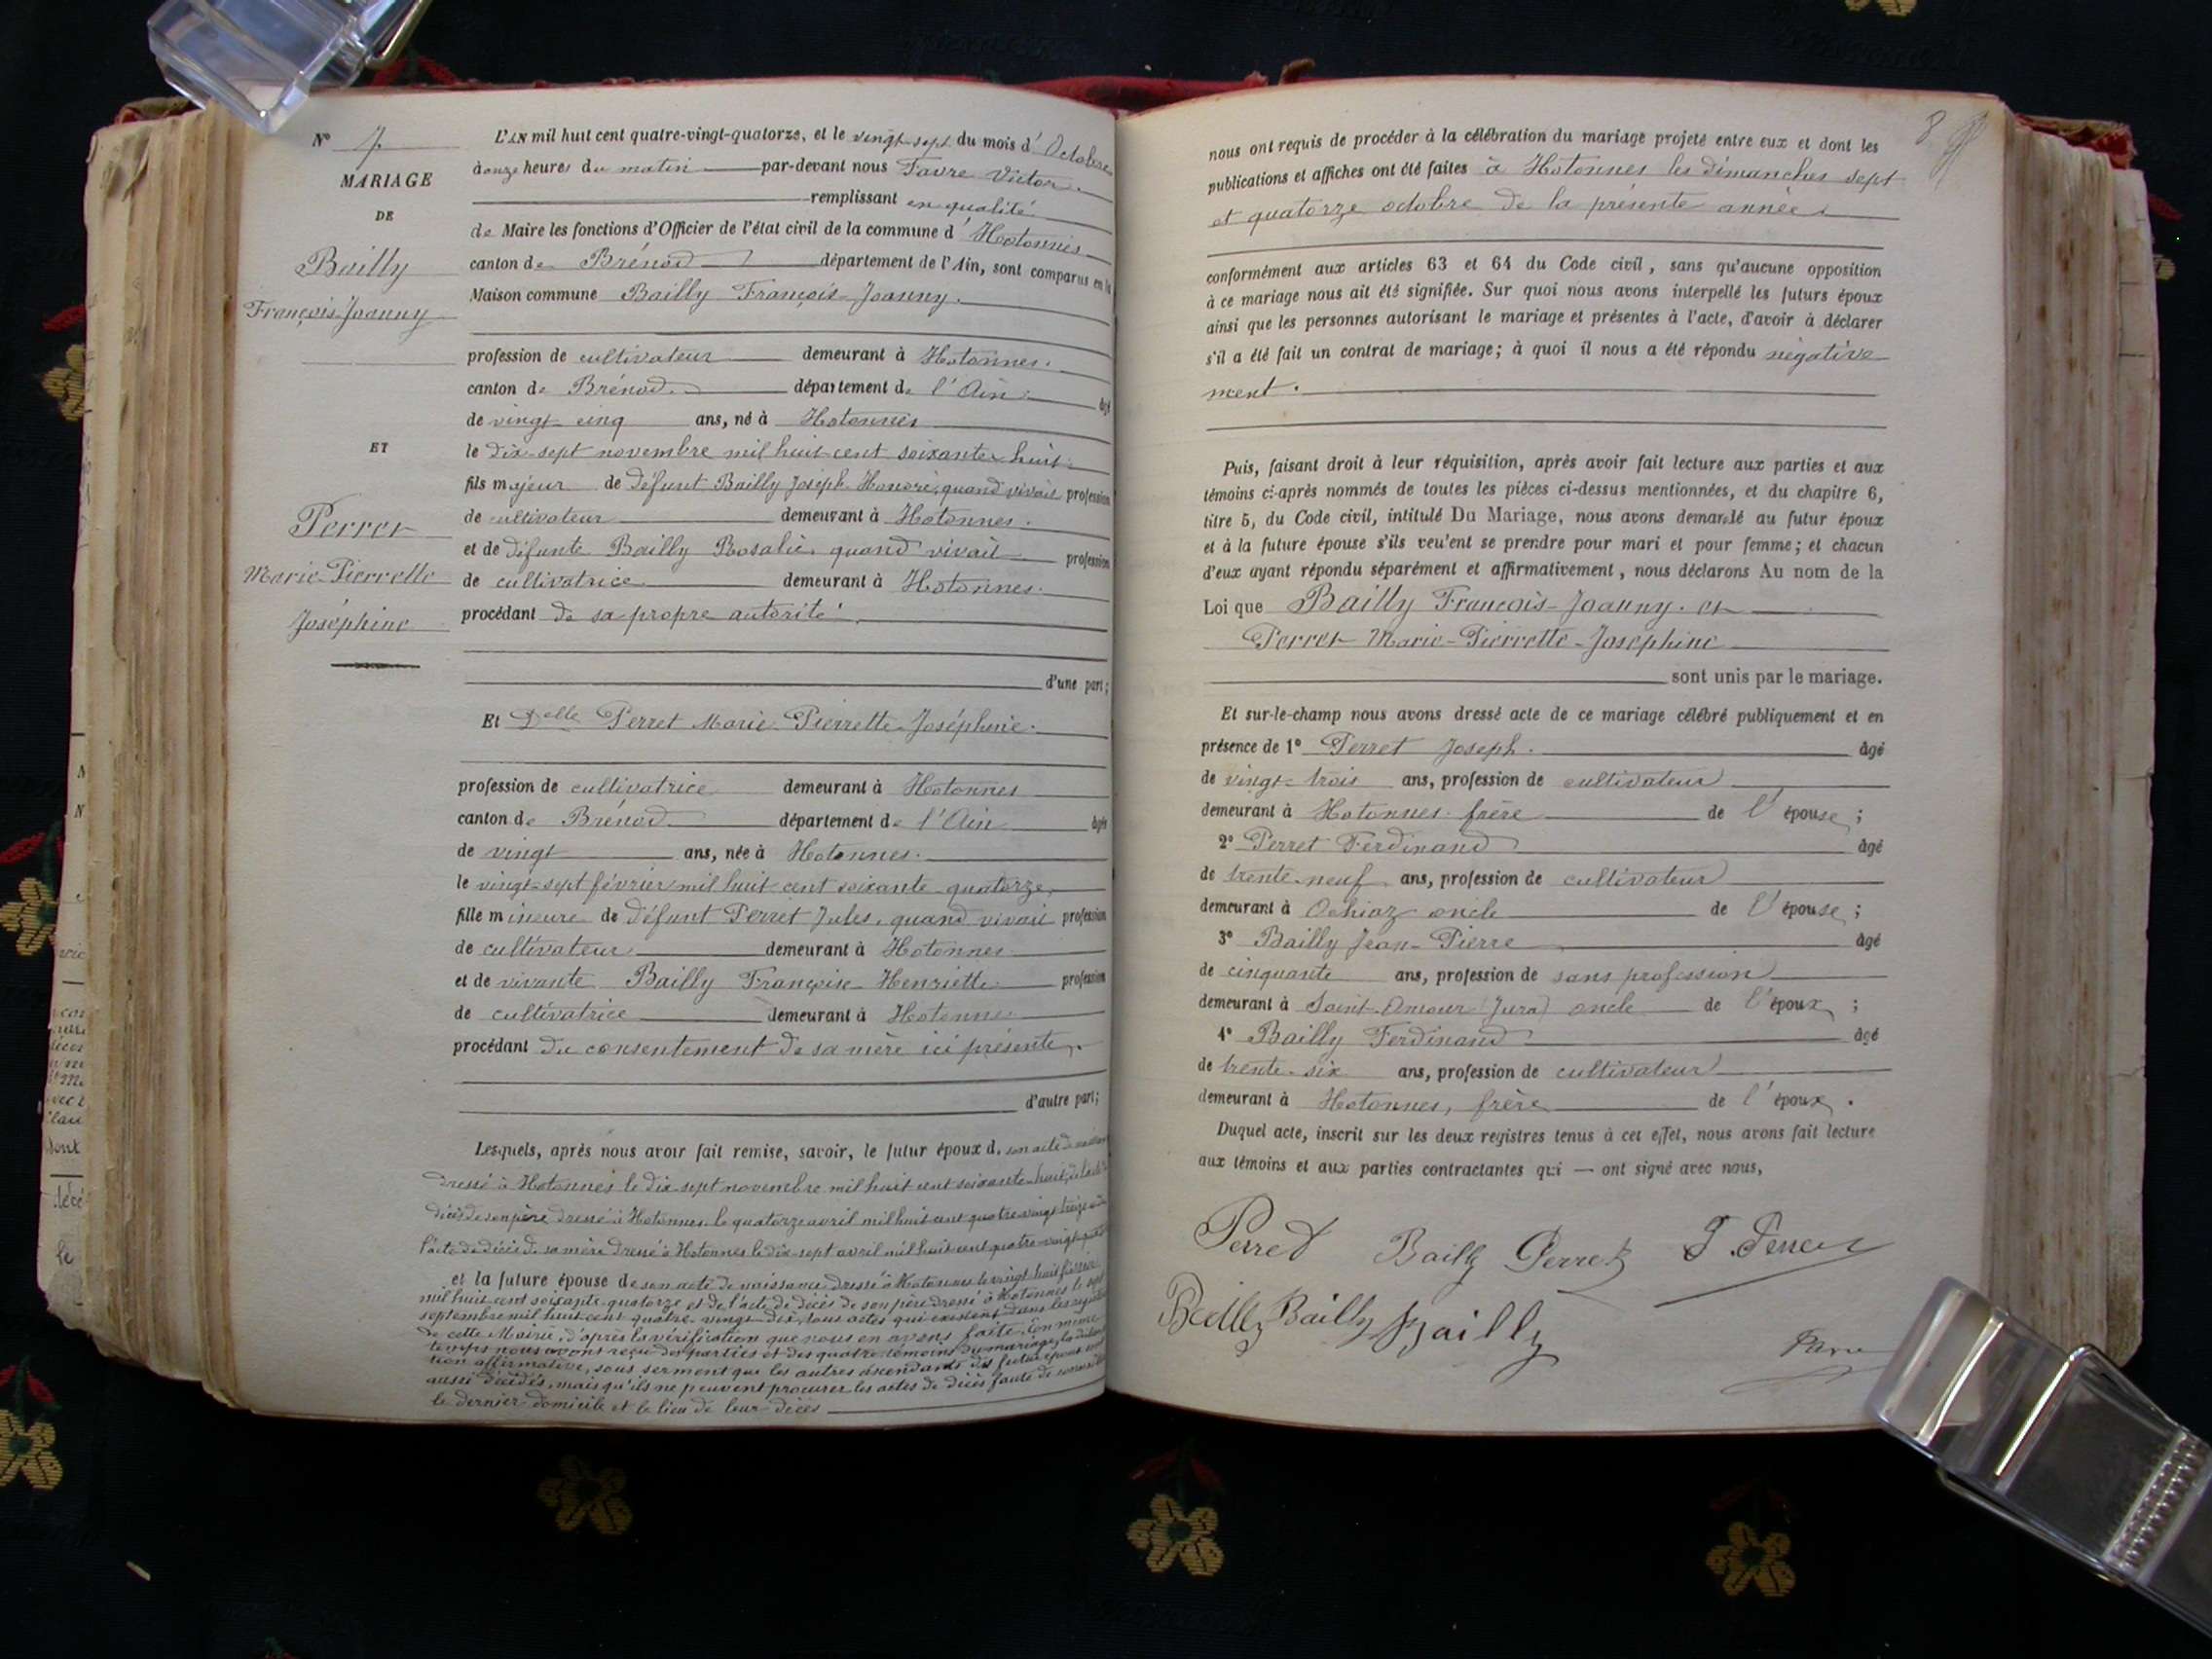 N° 7.
MARIAGE
DE
Bailly
François-Joanny
ET
Perret
Marie-Pierrette
Joséphine
L'AN mil huit cent quatre-vingt-quatorze, et le vingt-sept du mois d'Octobre
à onze heures du matin par-devant nous Favre Victor
remplissant en qualité
de Maire les fonctions d'Officier de l'état civil de la commune d'Hotonnes
canton de Brénod département de l'Ain, sont comparus en la
Maison commune Bailly François-Joanny.
profession de cultivateur demeurant à Hotonnes.
canton de Brénod département de l'Ain âgé
de vingt-cinq ans, né à Hotonnes
le dix-sept novembre mil huit cent soixante-huit
fils majeur de défunt Bailly Joseph-Honoré, quand vivait profession
de cultivateur demeurant à Hotonnes.
et de défunte Bailly Rosalie, quand vivait profession
de cultivatrice demeurant à Hotonnes.
procédant de sa propre autorité.
d'une part;
Et Delle Perret Marie-Pierrette-Joséphine.
profession de cultivatrice demeurant à Hotonnes
canton de Brénod département de l'Ain âgée
de vingt ans, née à Hotonnes.
le vingt-sept février mil huit cent soixante-quatorze,
fille mineure de défunt Perret Jules, quand vivait profession
de cultivateur demeurant à Hotonnes
et de vivante Bailly Françoise-Henriette profession
de cultivatrice demeurant à Hotonnes
procédant du consentement de sa mère ici présente.
d'autre part;
Lesquels, après nous avoir fait remise, savoir, le futur époux de son acte de naissance
dressé à Hotonnes le dix-sept novembre mil huit cent soixante-huit, de l'acte de
décès de son père dressé à Hotonnes le quatorze avril mil huit cent quatre-vingt-treize
l'acte de décès de sa mère dressé à Hotonnes le dix-sept avril mil huit cent quatre-vingt
et la future épouse de son acte de naissance dressé à Hotonnes le vingt-huit février
mil huit cent soixante-quatorze et de l'acte de décès de son père dressé à Hotonnes le sept
septembre mil huit cent quatre-vingt-dix, tous actes qui existent dans les registres
de cette Mairie, d'après la vérification que nous en avons faite. En même
temps nous avons reçu des parties et des quatre témoins du mariage, la déclara
tion affirmative, sous serment que les autres ascendants des futurs époux sont
aussi décédés, mais qu'ils ne peuvent procurer les actes de décès faute de connaître
le dernier domicile et le lieu de leur décès
8
nous ont requis de procéder à la célébration du mariage projeté entre eux et dont les
publications et affiches ont été faites à Hotonnes les dimanches sept
et quatorze octobre de la présente année
conformément aux articles 63 et 64 du Code civil, sans qu'aucune opposition
à ce mariage nous ait été signifiée. Sur quoi nous avons interpellé les futurs époux
ainsi que les personnes autorisant le mariage et présentes à l'acte, d'avoir à déclarer
s'il a été fait un contrat de mariage; à quoi il nous a été répondu négative
ment.
Puis, faisant droit à leur réquisition, après avoir fait lecture aux parties et aux
témoins ci-après nommés de toutes les pièces ci-dessus mentionnées, et du chapitre 6,
titre 5, du Code civil, intitulé Du Mariage, nous avons demandé au futur époux
et à la future épouse s'ils veulent se prendre pour mari et pour femme; et chacun
d'eux ayant répondu séparément et affirmativement, nous déclarons Au nom de la
Loi que Bailly François-Joanny. et
Perret Marie-Pierrette-Joséphine
sont unis par le mariage.
Et sur-le-champ nous avons dressé acte de ce mariage célébré publiquement et en
présence de 1° Perret Joseph. âgé
de vingt-trois ans, profession de cultivateur
demeurant à Hotonnes. frère de l'épouse;
2° Perret Ferdinand âgé
de trente-neuf ans, profession de cultivateur
demeurant à Ochiaz oncle de l'épouse;
3° Bailly Jean-Pierre âgé
de cinquante ans, profession de sans profession
demeurant à Saint-Amour (Jura) oncle de l'époux;
4° Bailly Ferdinand âgé
de trente-six ans, profession de cultivateur
demeurant à Hotonnes, frère de l'époux.
Duquel acte, inscrit sur les deux registres tenus à cet effet, nous avons fait lecture
aux témoins et aux parties contractantes qui — ont signé avec nous,
Perret Bailly Perret F. Perret
Bailly Bailly Bailly
Favre